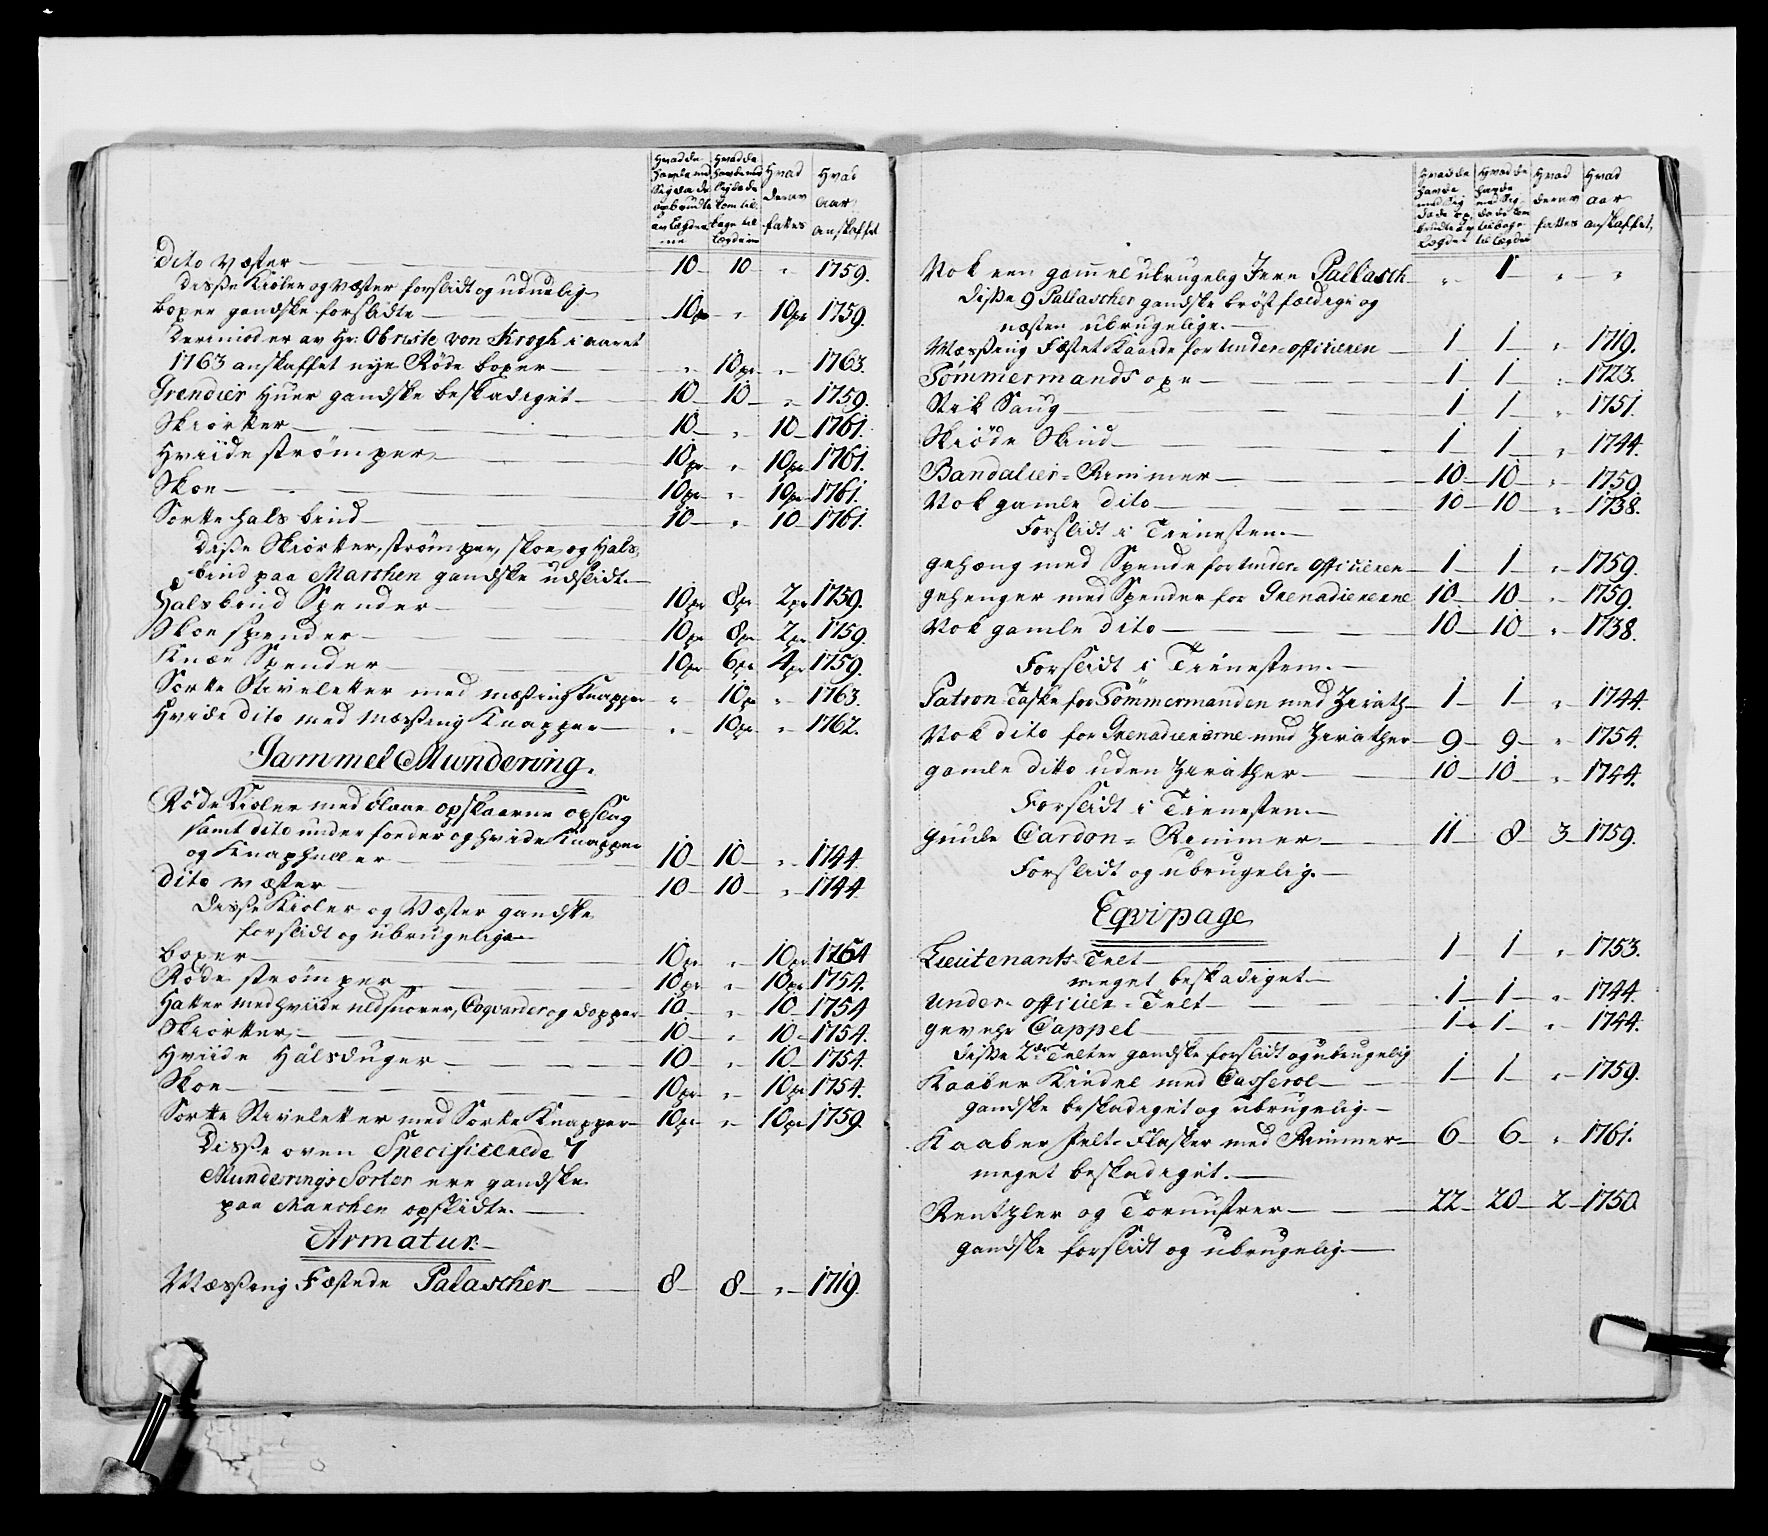 Hvad de Hvad de
havde med havde med Hvad Hvad
Sig da de Sig da de deraf Aar
opbrudte kom til- fattes anskaffet
av Lægder- bage til
ne Lægderne
Dito Væster — 10 — 10 — „ 1759.
disße Kioler og Væster forslidt og uduelig
boxer gandske forslidte — 10 pr „ 10 pr 1759.
Derimod er av Hr: Obriste von Krogh i aaret
1763 anskaffet nye Røde boxer — „ 10 pr „ 1763.
Grendier Huer gandske beskadiget — 10 — 10 — „ 1759.
Skiorter — 10 — „ 10 — 1761.
Hviide strømper — 10 pr „ 10 pr 1761.
Skoe — 10 pr „ 10 pr 1761.
Sorte Hals bind — 10 — „ 10 1761.
Disße Skiorter, strømper, skoe og Hals
bind paa Marchen gandske udslidt. —
Halsbind Spender — 10 pr 8 pr 2 pr 1759.
Skoe spender — 10 pr 8 pr 2 pr 1759.
Knæe Spender — 10 pr 6 pr 4 pr 1759.
Sorte Stiveletter med mæßing Knapper „ 10 pr „ 1763.
Hvide dito med Mæßing Knapper — „ 10 pr „ 1762.
Gammel Mundering.
Røde Kioler med blaae opskaarne opslag
samt dito under foeder og hvide Knapper
og Knaphuller — 10 — 10 — „ 1744.
Dito Væster — 10 — 10 — „ 1744.
Disße Kioler og Væster gandske
forslidt og ubrugelige —
boxer — 10 pr „ 10 pr 1764
Røde strømper — 10 pr „ 10 pr 1754.
Hatter med hviide uldsnorer, Coqvander og Dopper 10 — „ 10 — 1754
Skiorter — 10 — „ 10 — 1754.
Hviide Halsduger — 10 — „ 10 — 1754.
Skoe — 10 pr „ 10 pr 1754.
Sorte Stiveletter med Sorte Knapper — 10 pr „ 10 pr 1759.
Disße oven Specificerede 7
Munderings Sorter ere gandske
paa Marchen opslidte. —
Armatur. —
Mæsßing Fæstede Palascher — 8 — 8 — „ 1719.
Hvad de Hvad de Hvad Hvad
havde havde deraf aar
med Sig med Sig fattes anskaffet,
da de op- da de kom
brudte av tilbage
Lægdet til Lægdet
Nok een gammel ubrugelig Jern Pallasch — „ 1 — „ „
Disße 9 Pallascher gandske brøstfældige og
næsten ubrugelige. —
Mæsßing Fæstet Kaarde for Under-officieren — 1 — 1 — „ 1719.
Tømmermands oxe — 1 — 1 — „ 1723.
Stik Saug — 1 — 1 — „ 1751.
Skiøde Skind — 1 — 1 — „ 1744.
Bandalier-Remmer — 10 — 10 — „ 1759
Nok gamle dito — 10 — 10 — „ 1738.
Forslidt i Tienesten. —
gehæng med Spende for Under officieren — 1 — 1 — „ 1759.
gehenger med Spender for Grenadiererne 10 — 10 — „ 1759.
Nok gamle dito — 10 — 10 — „ 1738.
Forslidt i Tienesten. —
Patron Taske for Tømmermanden med Zirath — 1 — 1 — „ 1744
Nok dito for Grenadiererne med Zirather — 9 — 9 — „ 1754.
gamle ditto uden Zirather — 10 — 10 — „ 1744.
Forslidt i Tienesten. —
Guule Cardon-Remmer — 11 — 8 — 3 — 1759.
Forslidt og ubrugelig. —
Eqvipage
Lieutenants-Telt — 1 — 1 — „ 1753.
meget beskadiget —
Under-officier-Telt — 1 — 1 — „ 1744.
gevehr Cappel — 1 — 1 — „ 1744.
disße 2de Telter gandske forslidt og ubrugelig
Kaaber Kiedel med Casserol — 1 — 1 — „ 1759.
gandske beskadiget og ubrugelig —
Kaaber Felt-Flasker med Remmer — 6 — 6 — „ 1761.
meget beskadiget. —
Rentzler og Tornustrer — 22 — 20 — 2 — 1750
gandske forslidt og ubrugelig —